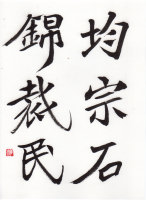 均宗石
錦裁民